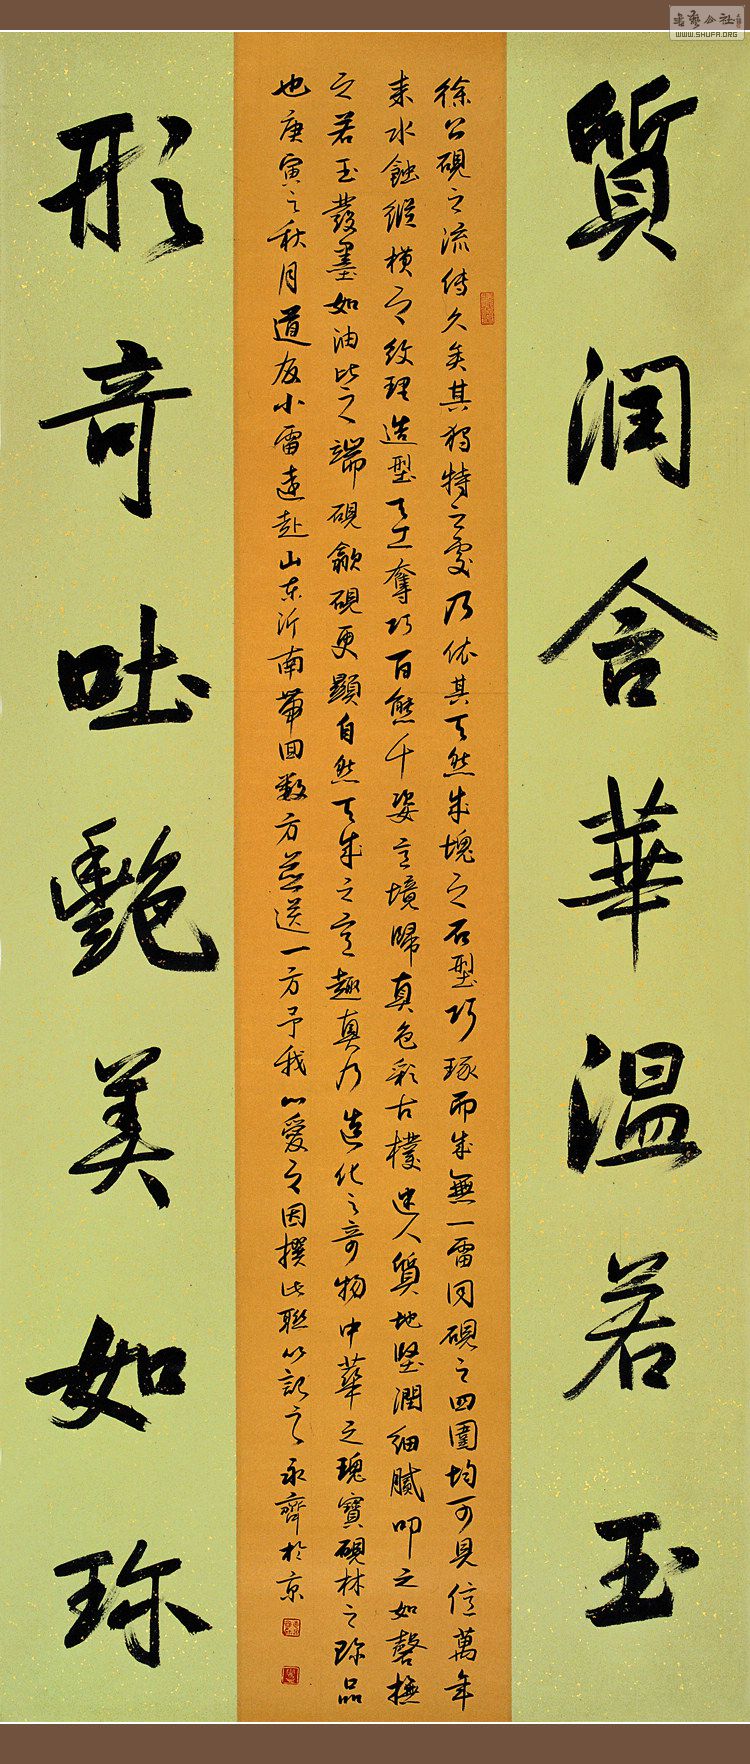 質潤含華温若玉
徐公硯之流傳久矣其獨特之處乃依其天然成塊之石型巧琢而成無一雷同硯之四圍均可見億萬年
来水蝕縱横之紋理造型天工奪巧百態千姿意境歸真色彩古樸迷人質地堅潤細膩叩之如磬撫
之若玉發墨如油比之端硯歙硯更顯自然天成之意趣真乃造化之奇物中華之瑰寶硯林之珍品
也庚寅之秋月道友小雷遠赴山东沂南帶回数方并送一方予我心愛之因撰此联以記之永齊於京
形奇吐艷美如珍
WWW.SHUFA.ORG